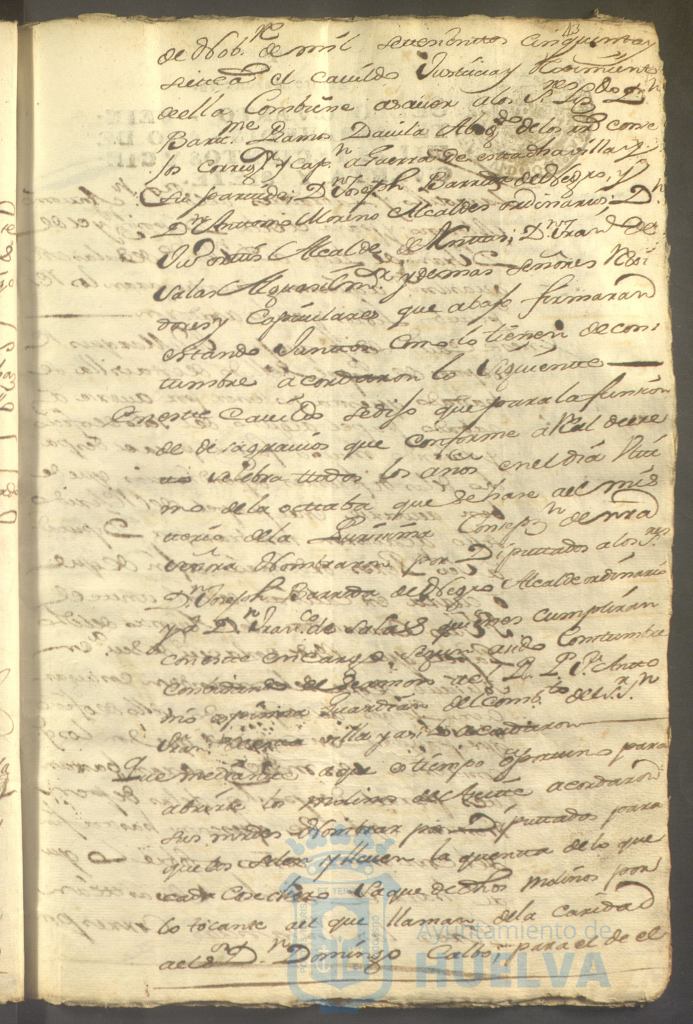 13
de Nob.re de mil setesientos cinquenta y
el Cavildo Justicia y Reximiento
della Combiene a saver a los S.res
Bartt.me Ramos Davila Abog.do de los R.s Conse
jos Correg.r y Cap.n a Guerra de esta dha villa y
su partido; D.n Joseph Barrida de Negro, y
D.n Antonio Moreno Alcaldes ordinarios; D.n
Alcalde de D.n Fran.co de
Salas Alguasil m.r y demas señores Rexi
dores y Capitulares que abajo firmaran
estando Juntos como lo tienen de cos
tumbre acordaron lo siguiente
En este Cavildo se dijo que para la funsion
de desagravios que conforme a Real decre
to se selebra ttodos los años en el dia
de la octtaba que se hase al mis
terio de la Purissima Consep.n de nra
señora Nombraron por Diputtados a los S.res
D.n Joseph Barrida de Negro Alcalde ordinario
y a D.n Fran.co de Salas quienes cumpliran
con este encargo segun costumbre
combidando el sermon al R. P. Fr. Anto
nio Guardian del Comb.to de S.r S.n
Fran.co de esta villa y asi lo acordaron
Que mediante a que es tiempo oportuno para
abrirse los molinos de Aseite acordaron
sus mrdes Nombrar por Diputtados para
que los selen y lleven la quenta de lo que
cada Cosechero saque de dhos molinos por
lo tocante al que llaman de la caridad
al S.r D.n Domingo Calbo; para el de el
Ayuntamiento de
HUELVA